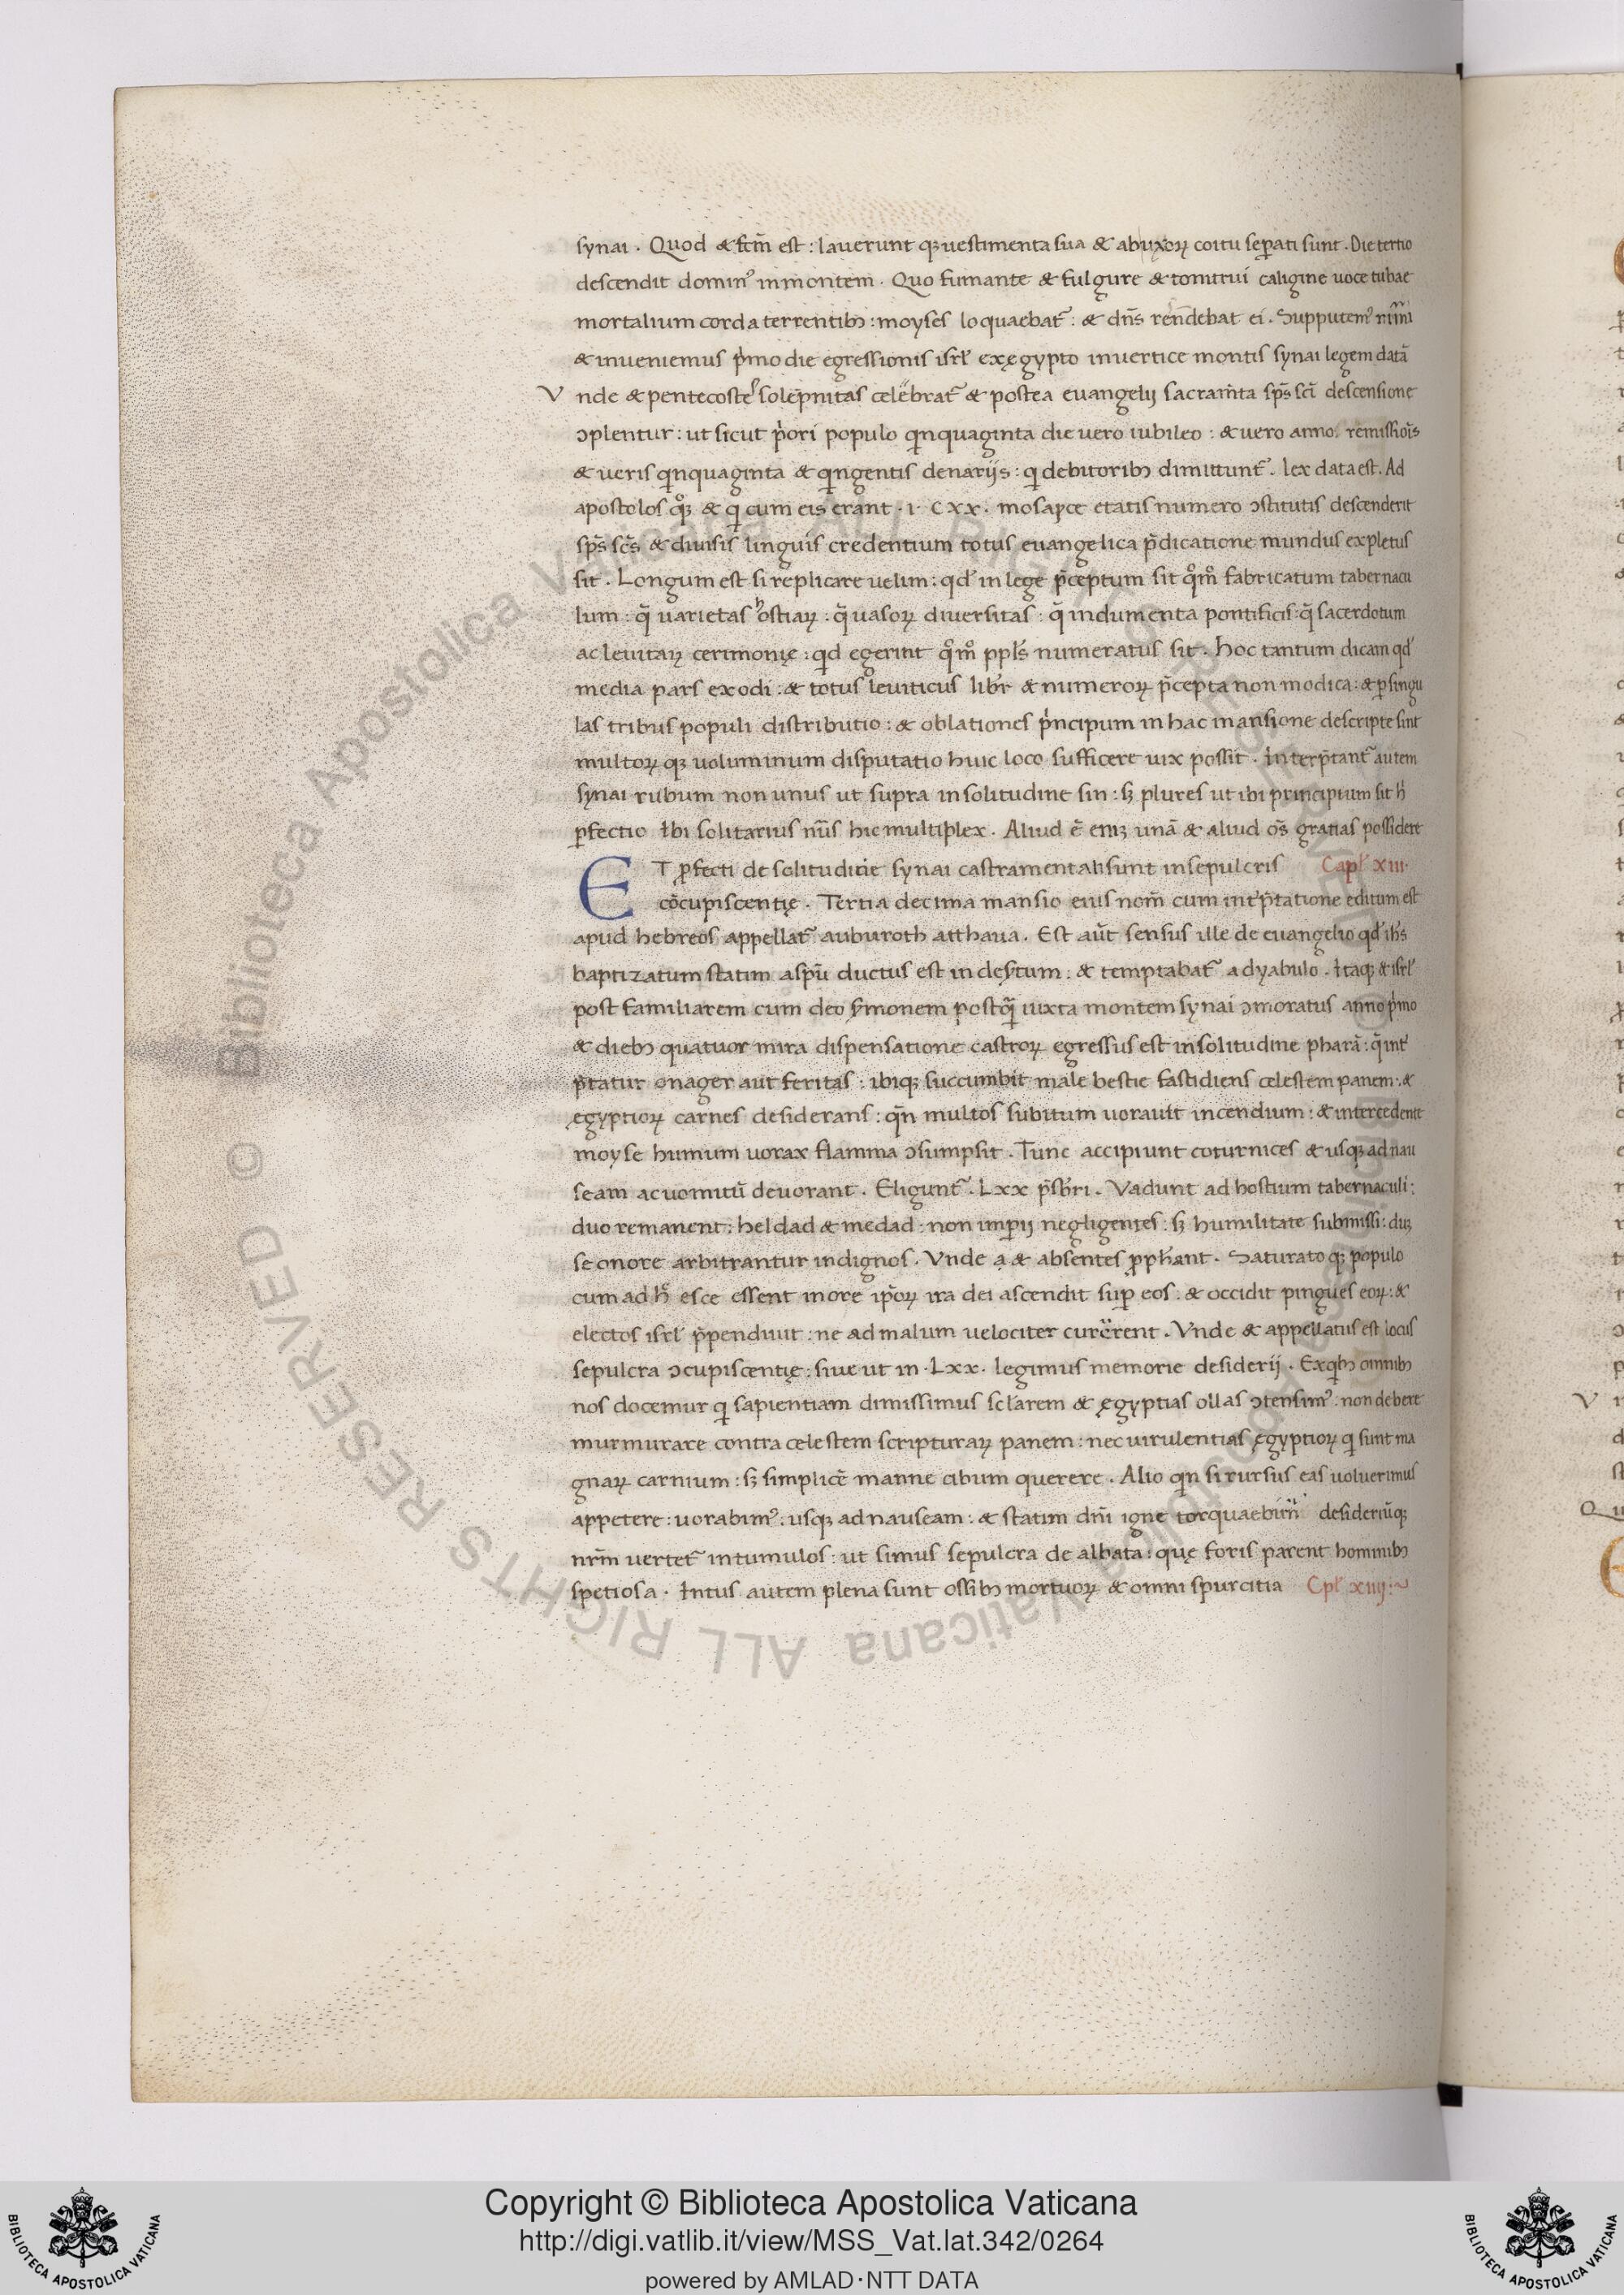 synai . Quod & fcm̄ est : lauerunt qꝫ uestimenta sua & ab uxorꝝ coitu seꝑati sunt . Die tertio
descendit dominꝰ in montem . Quo fumante & fulgure & tonitrui caligine uoce tubae
mortalium corda terrentibꝫ : moyses loquaebat᷑ : & dn̄s rn̄debat ei . Supputemꝰ
& inueniemus p̍mo die egressionis isrł ex ęgypto in uertice montis synai legem datā
V nde & pentecostes solēpnitas celebrat᷑ & postea euangelij sacram̄ta sp̄s sc̄i descensione
ꝯplentur : ut sicut p̍ori populo qinquaginta die uero iubileo : & uero anno . remissiōis
& ueris qinquaginta & qingentis denarijs : qi debitoribꝫ dimittunt᷑ . lex data est . Ad
apostolos qͦꝫ & qi cum eis erant · i · CXX · mosayce etatis numero ꝯstitutis descenderit
sp̄s sc̄s & diuisis linguis credentium totus euangelica p̄dicatione mundus expletus
sit . Longum est si replicare uelim : qđ in lege p̄ceptum sit qͦmͦ fabricatum tabernacu
lum : q̄ uarietas hostiaꝝ : q̄ uasoꝝ diuersitas : q̄ indumenta pontificis : q̄ sacerdotum
ac leuitaꝝ cerimonię : qid egerint qͦmͦ ppłs numeratus sit . hoc tantum dicam qđ
media pars exodi : & totus leuiticus libr̄ & numeroꝝ p̄cepta non modica : & ꝑ singu
las tribus populi distributio : & oblationes p̍ncipum in hac mansione descripte sint
multoꝝ qꝫ uoluminum disputatio huic loco sufficere uix possit . Interp̄tant᷑ autem
synai rubum non unus ut supra in solitudine sin : sꝫ plures ut ibi principium sit h̍
ꝑfectio ibi solitarius nūs hic multiplex . Aliud ē enꝫ unā & aliud oē̄s gratias possidere
ET ꝓfecti de solitudine synai castramentati sunt in sepulcris Capł xiii ·
cōcupiscentię . Tertia decima mansio eius nom̄ cum int̓p̄tatione editum est
apud hebreos appellat᷑ auburoth atthaua . Est aūt sensus ille de euangelio qđ ih̄s
baptizatum statim a sp̄u ductus est in dese̓tum : & temptabat᷑ a dyabulo . Itaqꝫ & isrł
post familiarem cum deo se̓monem postq̄ iuxta montem synai ꝯmoratus anno p̍mo
& diebꝫ quatuor mira dispensatione castroꝝ egressus est in solitudine pharā : q̄ int̓
p̄tatur onager aut feritas : ibiqꝫ succumbit male bestie fastidiens celestem panem : &
ęgyptioꝝ carnes desiderans : qn̄ multos subitum uorauit incendium : & intercedente
moyse humum uorax flamma ꝯsumpsit . Tunc accipiunt coturnices & usqꝫ ad nau
seam ac uomitū deuorant . Eligunt᷑ . LXX p̄sb̄ri . Vadunt ad hostium tabernaculi :
duo remanent : heldad & medad : non imꝑij negligentes : sꝫ humilitate submissi : duꝫ
se onore arbitrantur indignos . Vnde a & absentes ꝓphant . Saturato qꝫ populo
cum ad h̍ esce essent in ore ip̄oꝝ ira dei ascendit suꝑ eos . & occidit pingues eoꝝ : &
electos isrł p̄penduit : ne ad malum uelociter curerent . Vnde & appellatus est locus
sepulcra ꝯcupiscentię : siue ut in · LXX · legimus memorie desiderij . Ex qibꝫ omnibꝫ
nos docemur qi sapientiam dimissimus scłarem & ęgyptias ollas ꝯtensimꝰ : non debere
murmurare contra celestem scripturaꝝ panem : nec uirulentias ęgyptioꝝ qi sunt ma
gnaꝝ carnium : sꝫ simplicē manne cibum querere . Alio qin si rursus eas uoluerimus
appetere : uorabimꝰ : usqꝫ ad nauseam : & statim dn̄i igne torquaebim̄ desideriūqꝫ
nrm̄ uertet᷑ in tumulos : ut simus sepulcra de albata : quę foris parent hominibꝫ
spetiosa · Intus autem plena sunt ossibꝫ mortuoꝝ & omni spurcitia Cpł xiiij :~
Copyright © Biblioteca Apostolica Vaticana
http://digi.vatlib.it/view/MSS_Vat.lat.342/0264
powered by AMLAD·NTT DATA
BIBLIOTECA APOSTOLICA VATICANA
BIBLIOTECA APOSTOLICA VATICANA